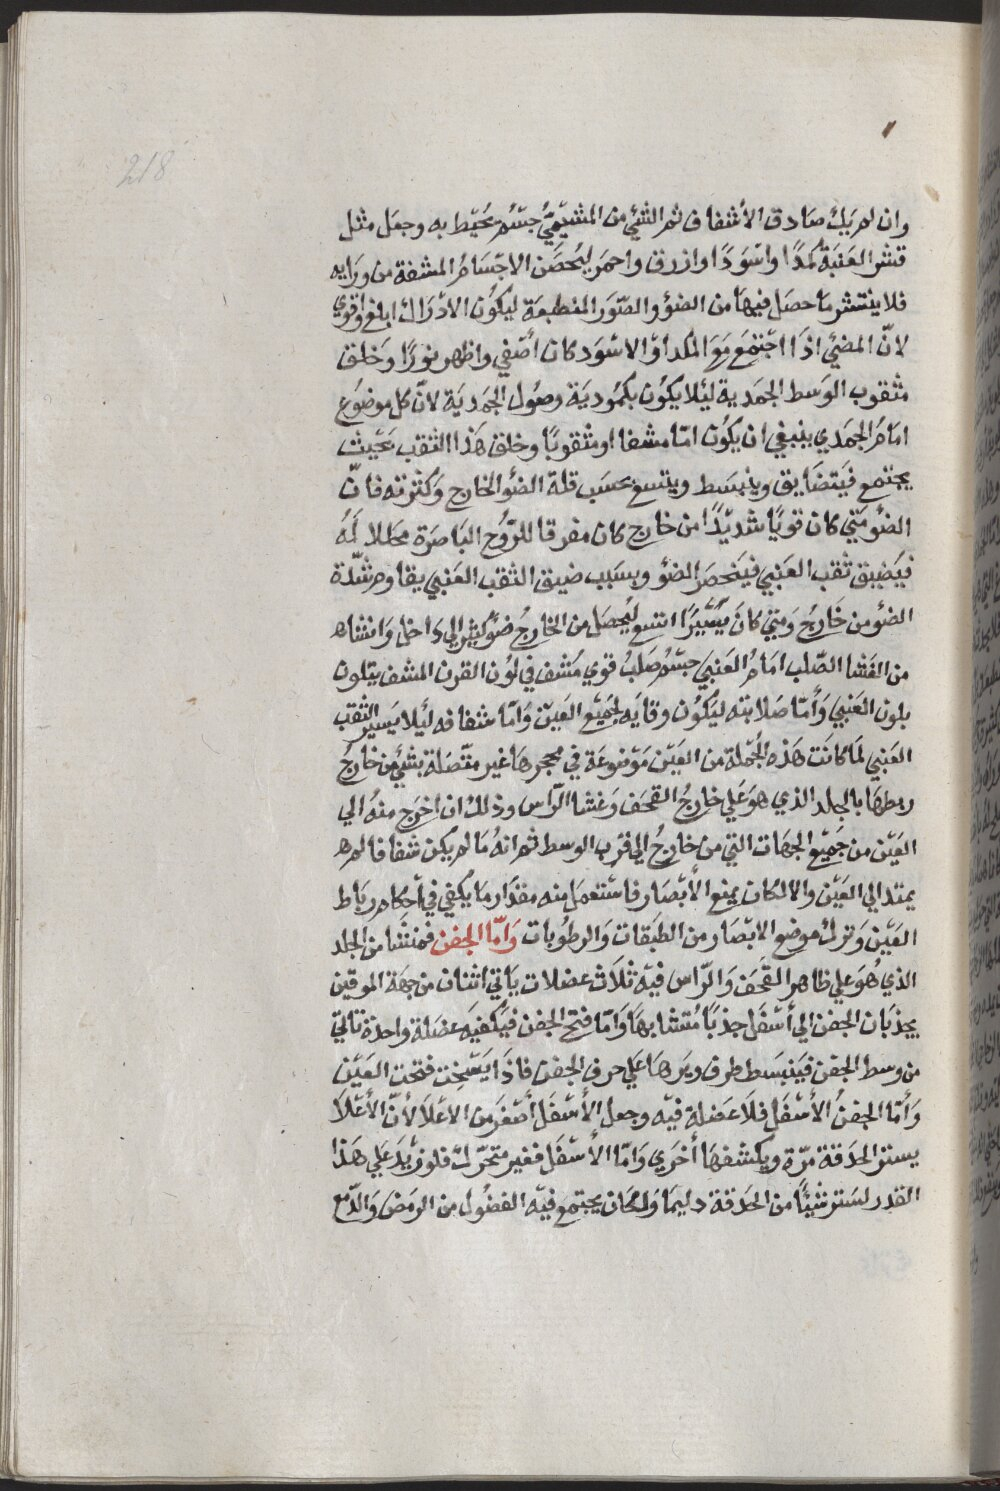 218
وان لم يك صادق الأشفاف ثم الشئ من المشيميُ جسْمُ محُيط به وجعَل مثل
قشر العَنبَة كمدًا واسْودًا وازرق واحمر ليُحصَن الاجْسَامُ المشفة من ورَايه
فلا ينتشر مَا حصَل فيهَا من الضؤ والصّورَ المنطبعَة ليكُون الادْرَاك ابلغ واقوي
لانّ المضئ اذَا اجْتمَعَ مَعَ المكد اوْ الاسْوَد كان أصْفي واظهر نورًا وَخلق
مثقوب الوَسط الجمَدية ليُلا يكُون بكمُوديَة وصُول الجمَديَة لانّ كل موضُوع
امامُ الجمَدي ينبغي ان يكُون امّا مشفا او مثقوبًا وخلق هَذا الثقب بحَيث
يجتمع فيَتضَايق وينبسَط ويتسع بحسَب قلة الضؤ الخارج وَكثرته فانّ
الضؤ متي كان قويًا شديدًا من خارج كان مفرقا للرّوُح البَاصرَة محَللا لهُ
فيَضيق ثقب العَنبي فيَنحصَر الضؤ وبسَبب ضيق الثقب العَنبي يقاومَ شدّة
الضؤ من خَارجُ وَمتيَ كانَ يسَيرًا اتسع ليُحصَل من الخارجُ ضوٌ كثير الي دَاخل وَانشاه
من الغَشا الصّلب امَامُ العَنبيَ جسْمُ صَلبُ قوي مُشف في لوُن القرن المشف يتلون
بلون العَنبي وَأمّا صَلابته ليَكُون وقايَه لجَميْع العَين وَامّا شفافه ليُلا يسَير الثقب
العَنبي لمَا كانت هَذه الجُملة من العَيْن مَوْضوعَة في محجرهَا غير متصَلة بشئٍ من خارجُ
ربطهَا بالجلد الذي هوَ عَلي خارجُ القحَف وَغشا الرّاس وذلك ان اخرَج منهُ الي
العَيْن من جَميْع الجهَات التي من خارجُ الي قرب الوسط ثم انهُ مَا لم يكن شفافا لم ه
يمتد الي العَيْن والا لكان يمنع الأبْصَار فاسْتعمَل منه مقدَار مَا يكفي في أحكام ربَاط
العَيْن وَترك موضع الابْصَار من الطبَقات وَالرطوُبات وَامّا الجفن فمنشَا من الجلد
الذي هُوَ عَلي ظاهر القَحَف وَالرّاس فيْه ثلاَث عضلات يَاتي اثنان من جهَة الموقين
يجذبَان الجفن الي أسْفَل جذبًا مُتشابهَا وَامّا فتح الجفن فيَكفيَه عضَلة واحدَة تَاتي
من وسط الجفن فيَنبسَط طرف وترهَا عَلي حرف الجفن فاذَا يسَنجت فتحت العَيْن
وَأمّا الجفنُ الأسْفَل فلاَ عضَلة فيْه وجعل الأسْفَل أصْغرَ من الاعْلا لأنّ الأعْلاَ
يستر الحَدَقة مرّة ويكشفهَا أخرَي وَامّا الأسْفَل فغير متحَرّك فلو زيْدَ عَلي هَذا
القَدر لسَتر شيئًا من الحَدقة دايمَا وَلكَان يجتمع فيْه الفضُول من الرمَص وَالدّمْع